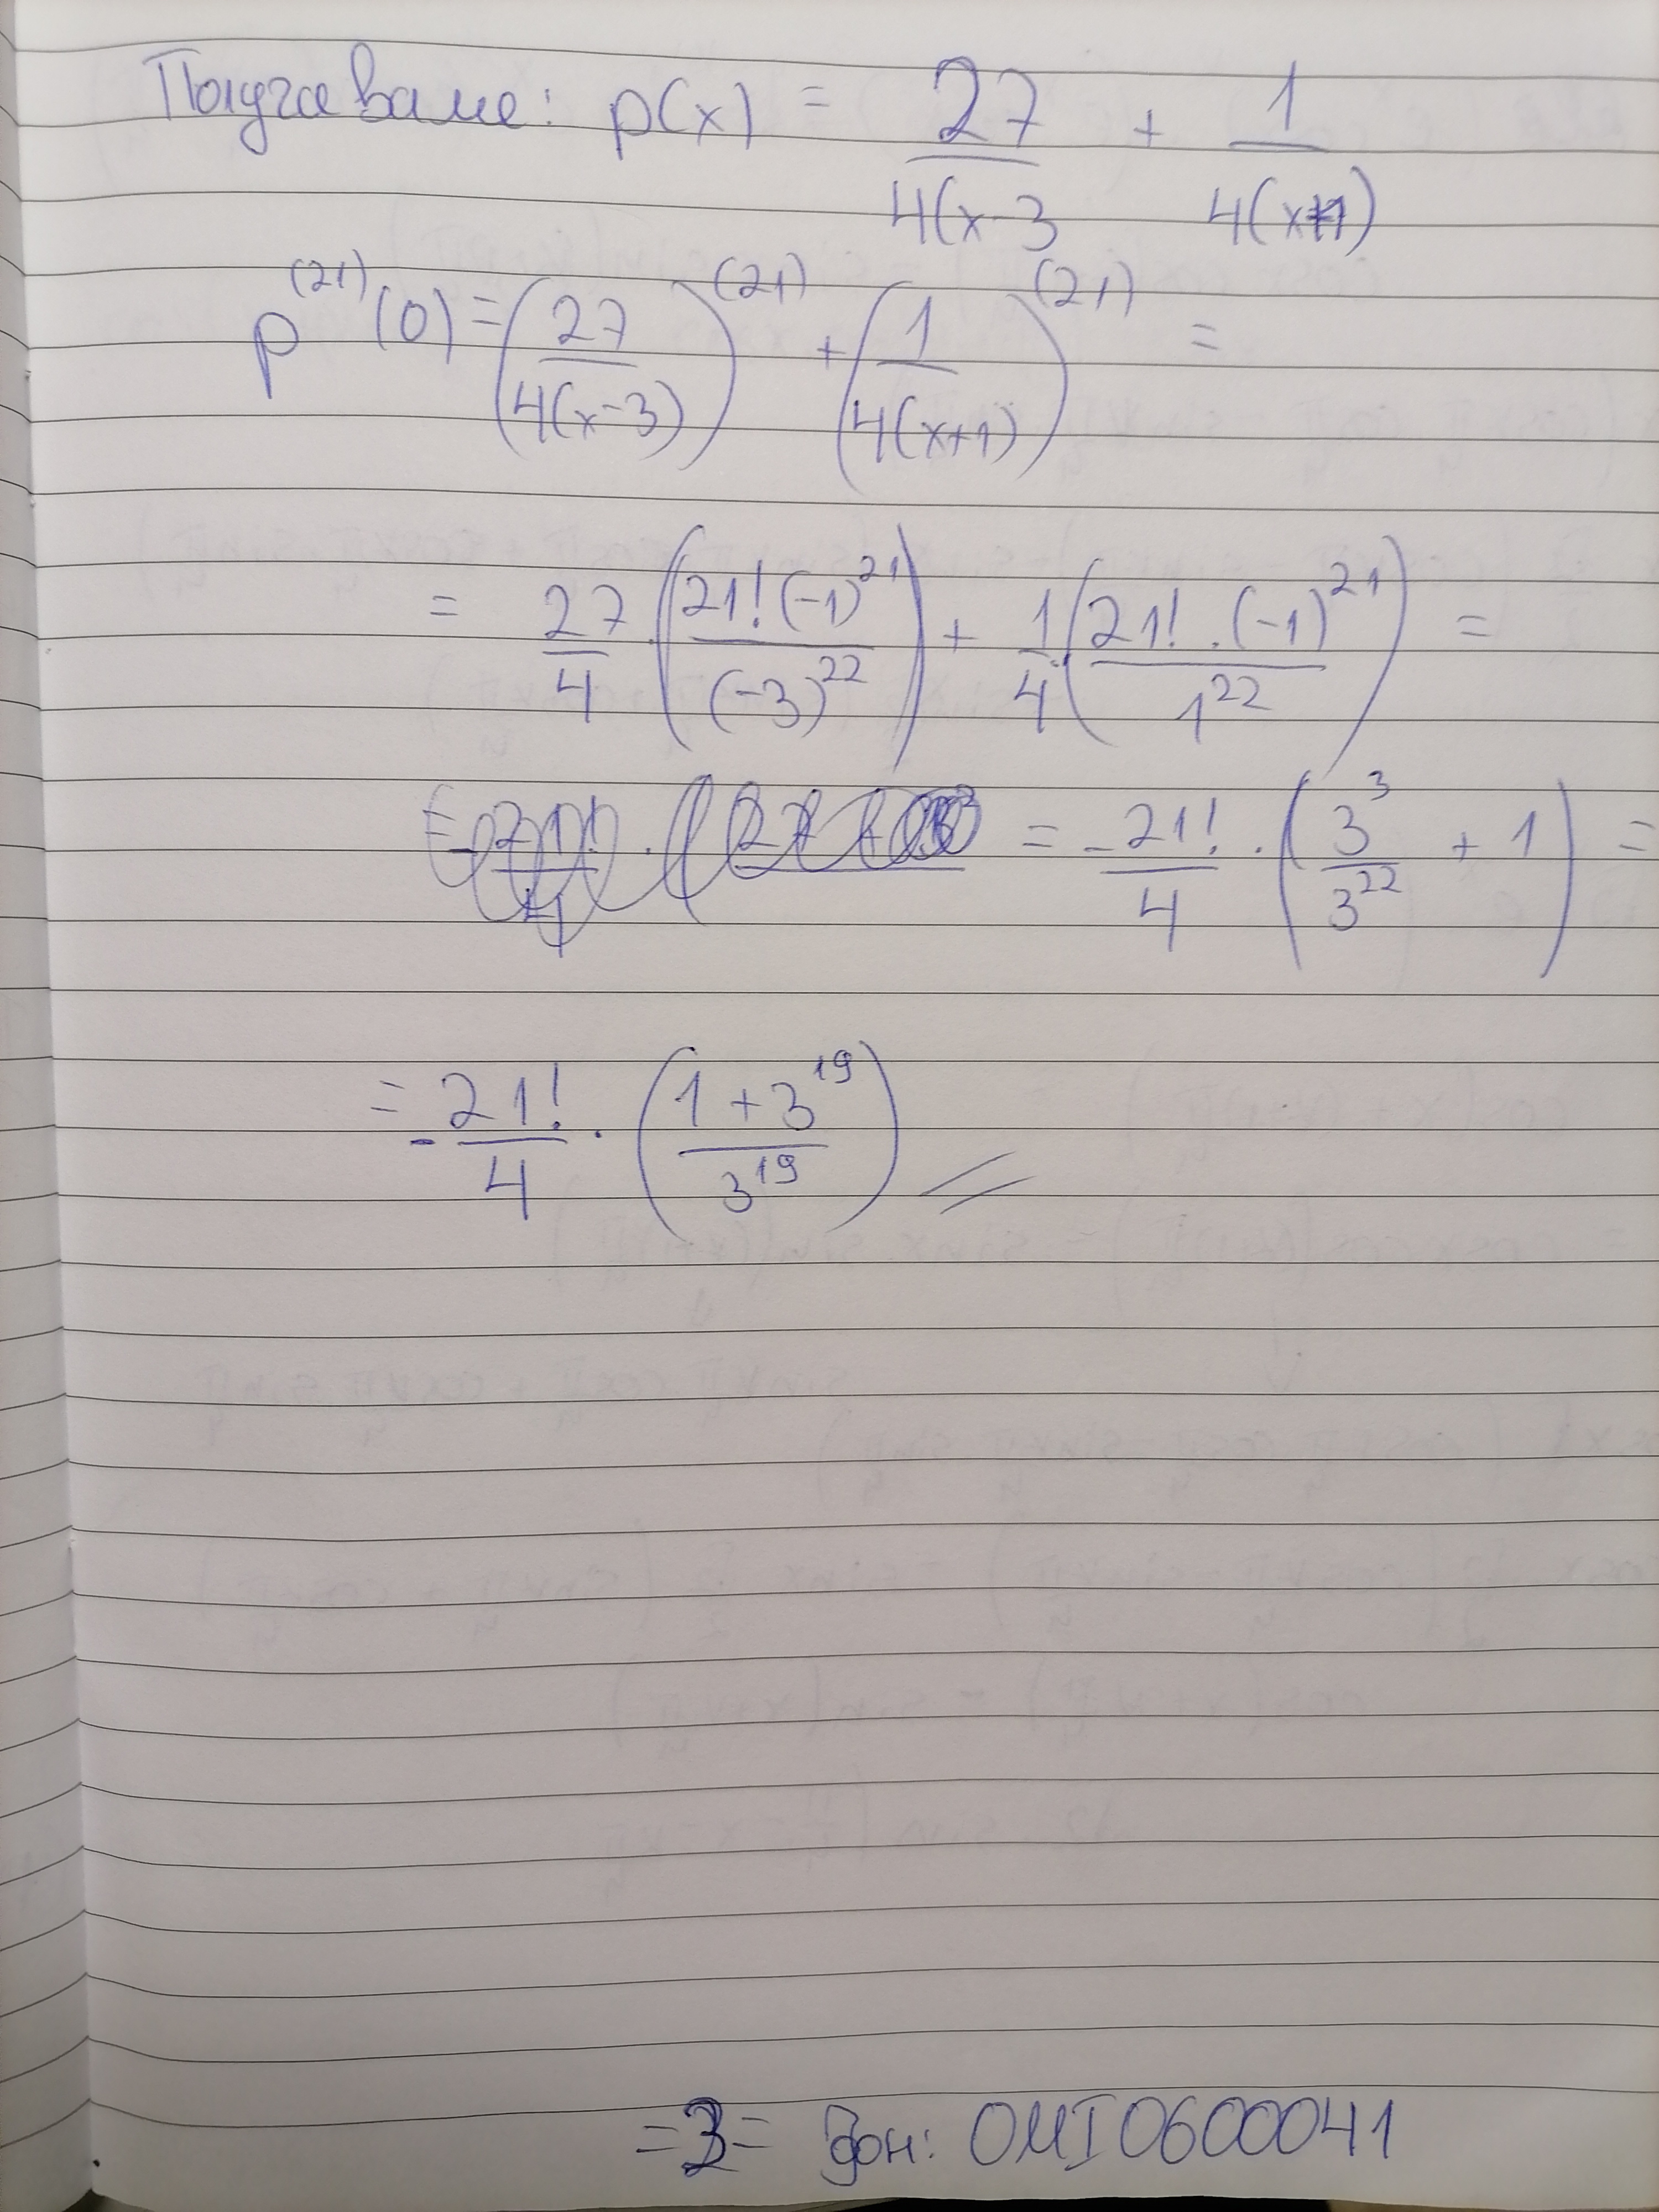 Получаваме: p(x) = 27/4(x-3 + 1/4(x+1)
p^(21) (0) = (27/4(x-3))^(21) + (1/4(x+1))^(21) =
= 27/4 . (21! (-1)^21/(-3)^22) + 1/4 . (21! . (-1)^21/1^22) =
= -21!/4 . (3^3/3^22 + 1) =
= -21!/4 . (1 + 3^19/3^19)
=3= фон: 0MI0600041